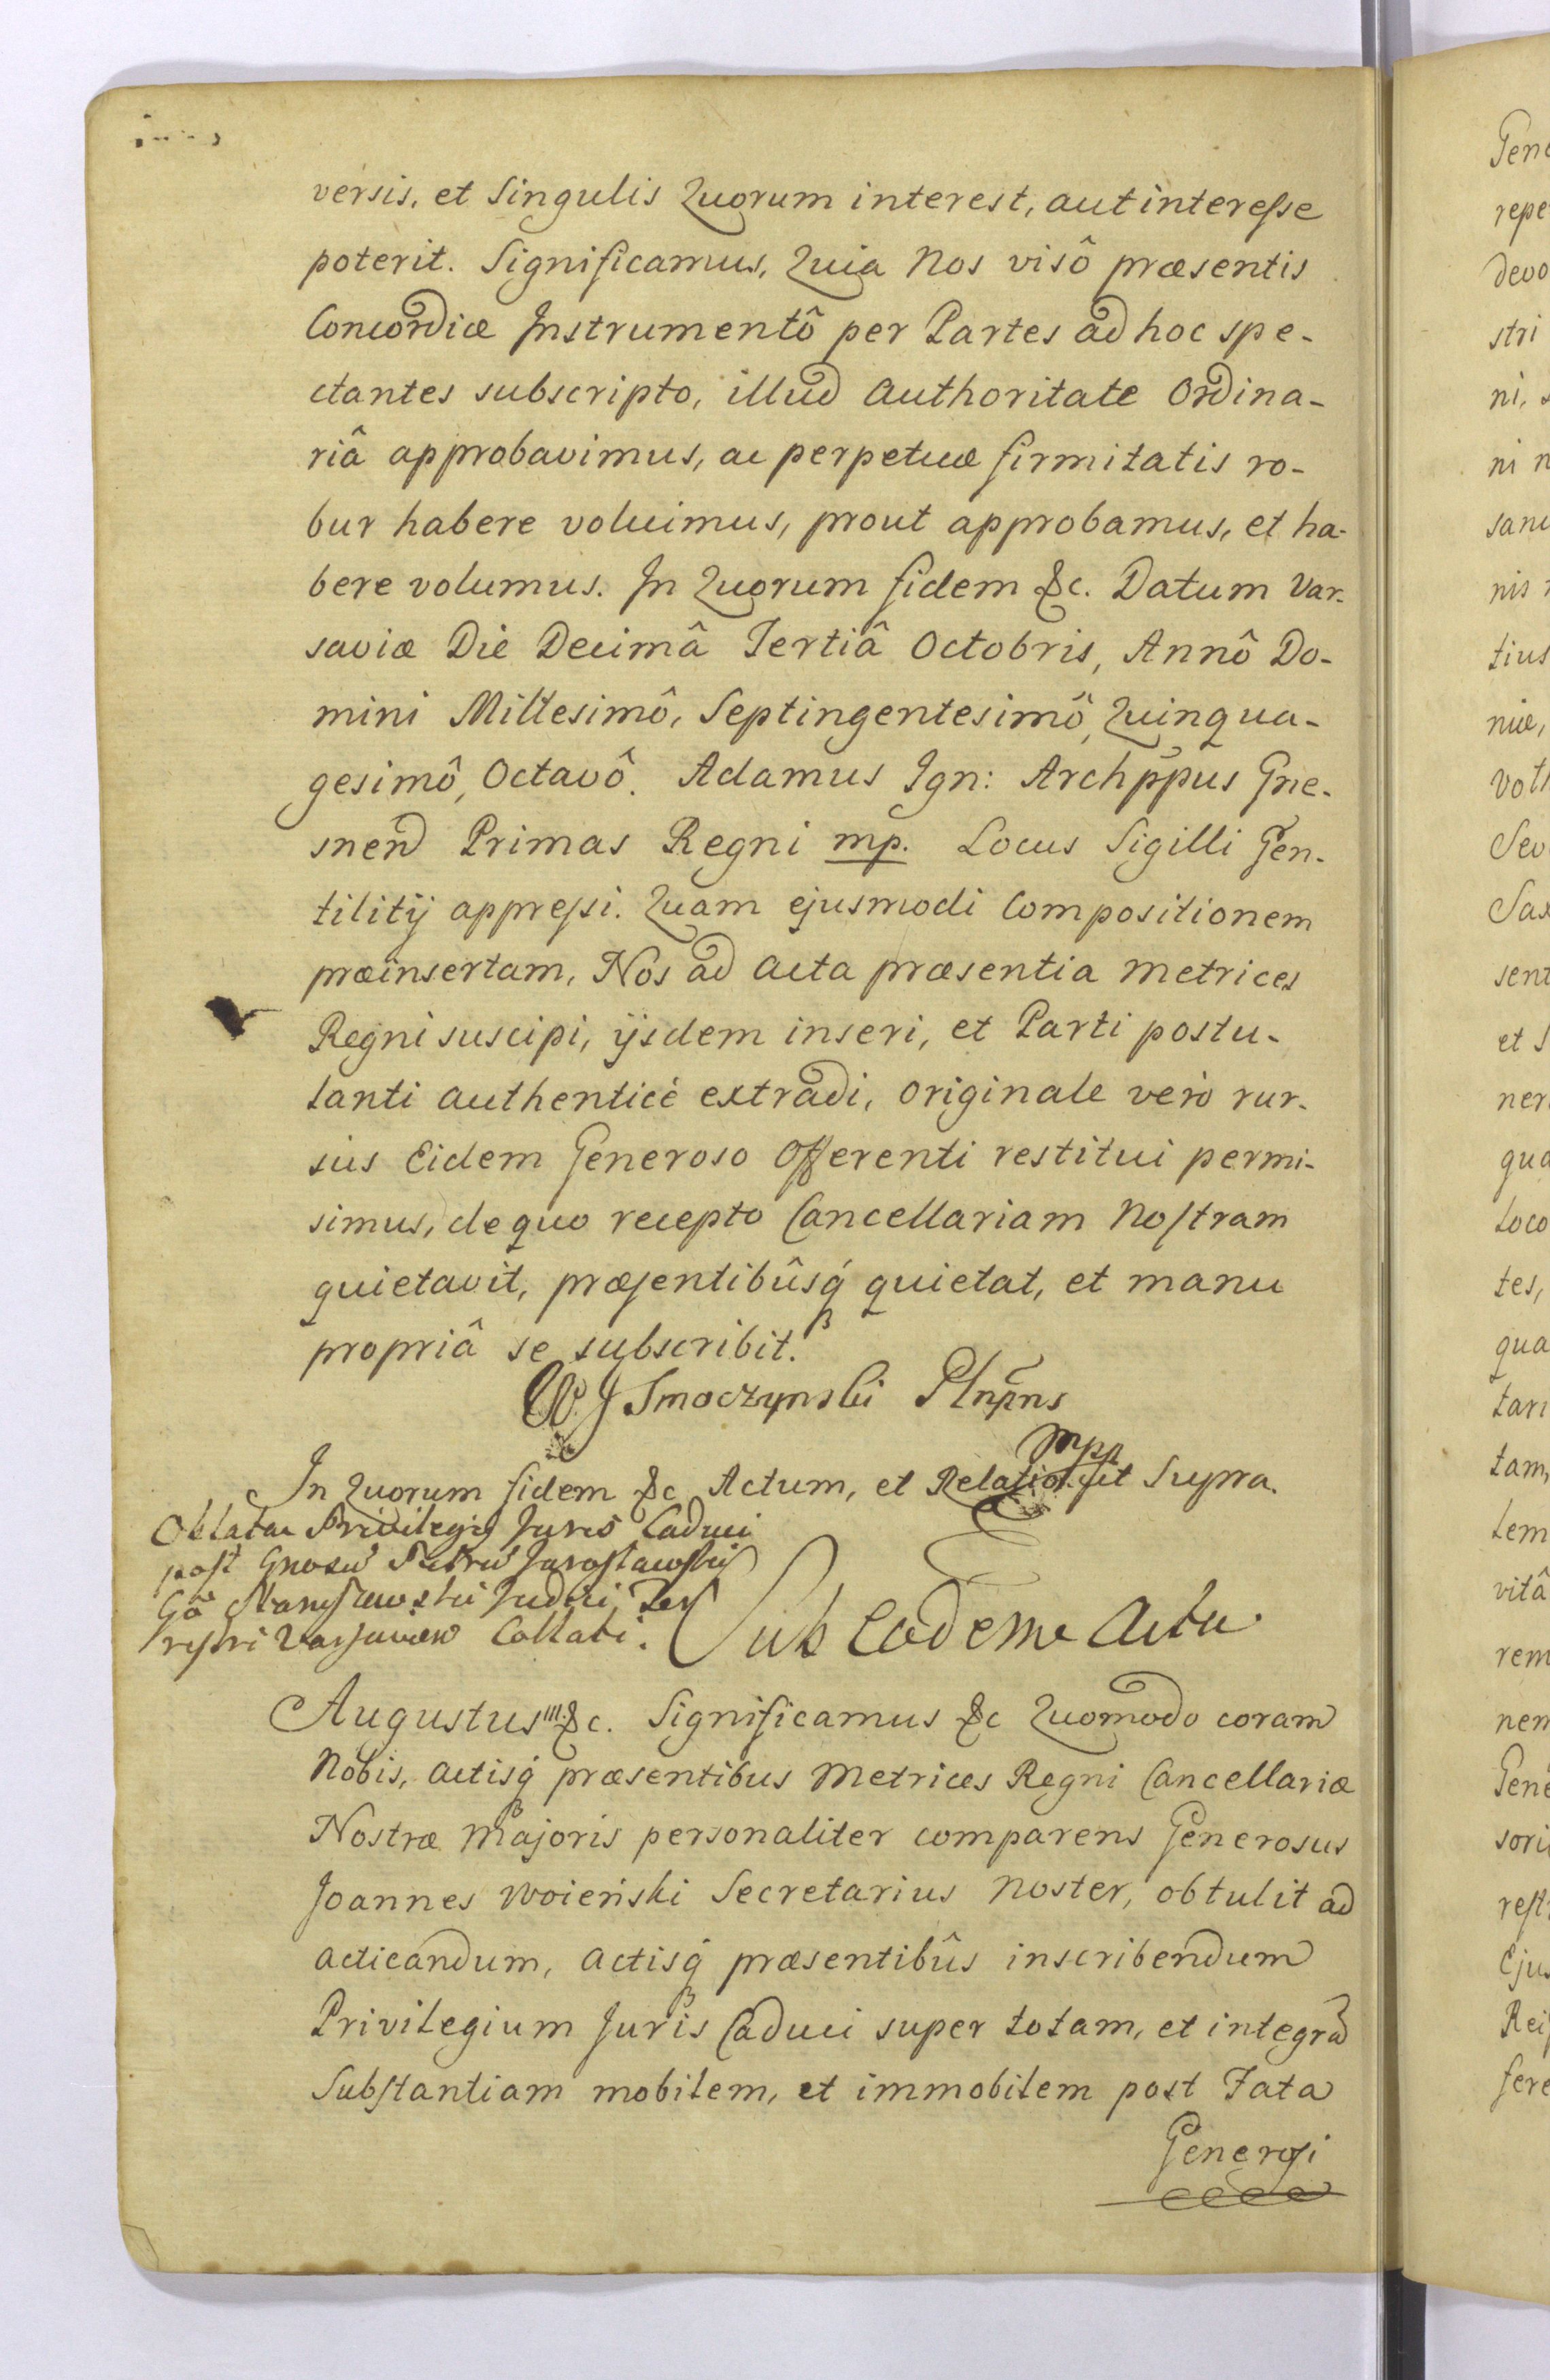 versis, et Singulis Quorum interest, aut interesse
poterit. Significamus, Quia Nos visô præsentis
Concordiæ Instrumentô per Partes ad hoc spe-
ctantes subscripto, illud Authoritate Ordina-
riâ approbavimus, ac perpetuæ firmitatis ro-
bur habere voluimus, prout approbamus, et ha-
bere volumus. In Quorum fidem &c. Datum Var-
saviæ Die Decimâ Tertiâ Octobris, Annô Do-
mini Millesimô, Septingentesimô, Quinqua-
gesimô, Octavô. Adamus Ign: Archppus Gne-
snen Primas Regni mp. Locus Sigilli Gen-
tilitij appressi. Quam ejusmodi Compositionem
præinsertam, Nos ad Acta præsentia Metrices
Regni suscipi, ijsdem inseri, et Parti postu-
lanti authenticè extradi, originale verò rur-
sus Eidem Generoso Offerenti restitui permi-
simus, de quo recepto Cancellariam Nostram
quietavit, præsentibûsq́ quietat, et manu
propriâ se subscribit.
W J Smoczynski Plnpns
mpp
In Quorum fidem &c Actum, et Relatio. ut Supra.
Oblatae Privilegij Juris Caduci
post Gnosū Petrū Jarosławski
Gō Stanisławski Judici Ter
restri Varsavien Collati.
Sub Eodem Actu
Augustus III. &c. Significamus &c Quomodo coram
Nobis, Actisq́ præsentibus Metrices Regni Cancellariæ
Nostræ Majoris personaliter comparens Generosus
Joannes Woieński Secretarius Noster, obtulit ad
acticandum, Actisq́ præsentibûs inscribendum
Privilegium Juris Caduci super totam, et integrā
Substantiam mobilem, et immobilem post Fata
Generosi
Gene
repe
devo
stri
ni,
ni n
sanc
nis
tius
niæ,
Voth
Sev
Sax
sent
et S
ner
qua
Loco
tes,
qua
tari
tam,
lem
vitâ
rem
nem
Gene
sori
restr
Ejus
Reip
fere